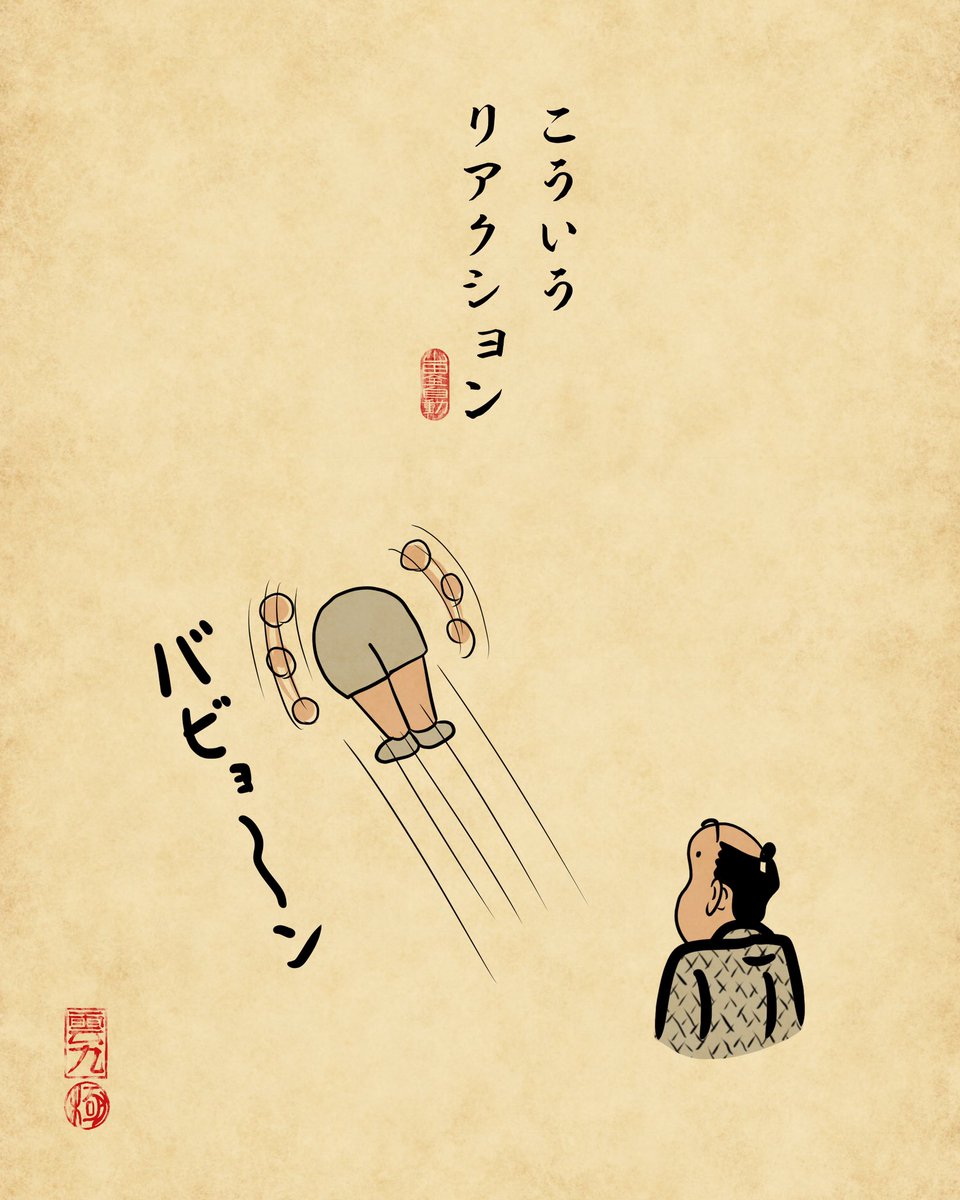 こういう
リアクション
バビョ〜ン
雲九
極